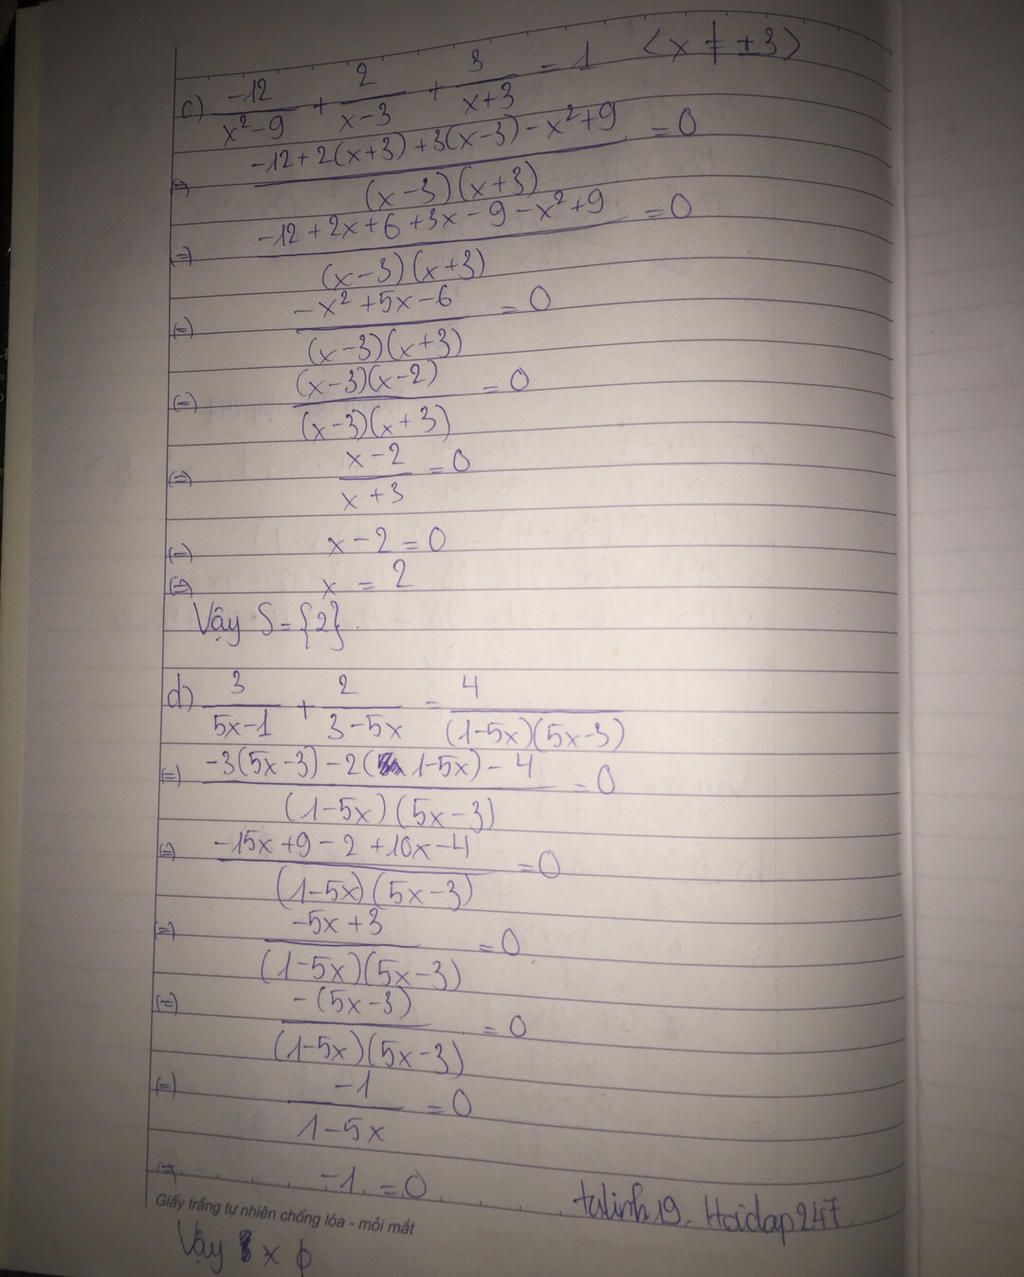 c) -12/(x²-9) + 2/(x-3) + 3/(x+3) = 1 <x ≠ ±3>
(=) (-12+2(x+3)+3(x-3)-x²+9)/((x-3)(x+3)) = 0
(=) (-12+2x+6+3x-9-x²+9)/((x-3)(x+3)) = 0
(=) (-x²+5x-6)/((x-3)(x+3)) = 0
(=) ((x-3)(x-2))/((x-3)(x+3)) = 0
(=) (x-2)/(x+3) = 0
(=) x-2=0
(=) x = 2
Vậy S={2}.
d) 3/(5x-1) + 2/(3-5x) = 4/((1-5x)(5x-3))
(=) (-3(5x-3)-2(1-5x)-4)/((1-5x)(5x-3)) = 0
(=) (-15x+9-2+10x-4)/((1-5x)(5x-3)) = 0
(=) (-5x+3)/((1-5x)(5x-3)) = 0
(=) (-(5x-3))/((1-5x)(5x-3)) = 0
(=) -1/(1-5x) = 0
(=) -1 = 0
Giấy trắng tự nhiên chống lóa - mỏi mắt
tulinh19. Hoidap247
Vậy x ϕ